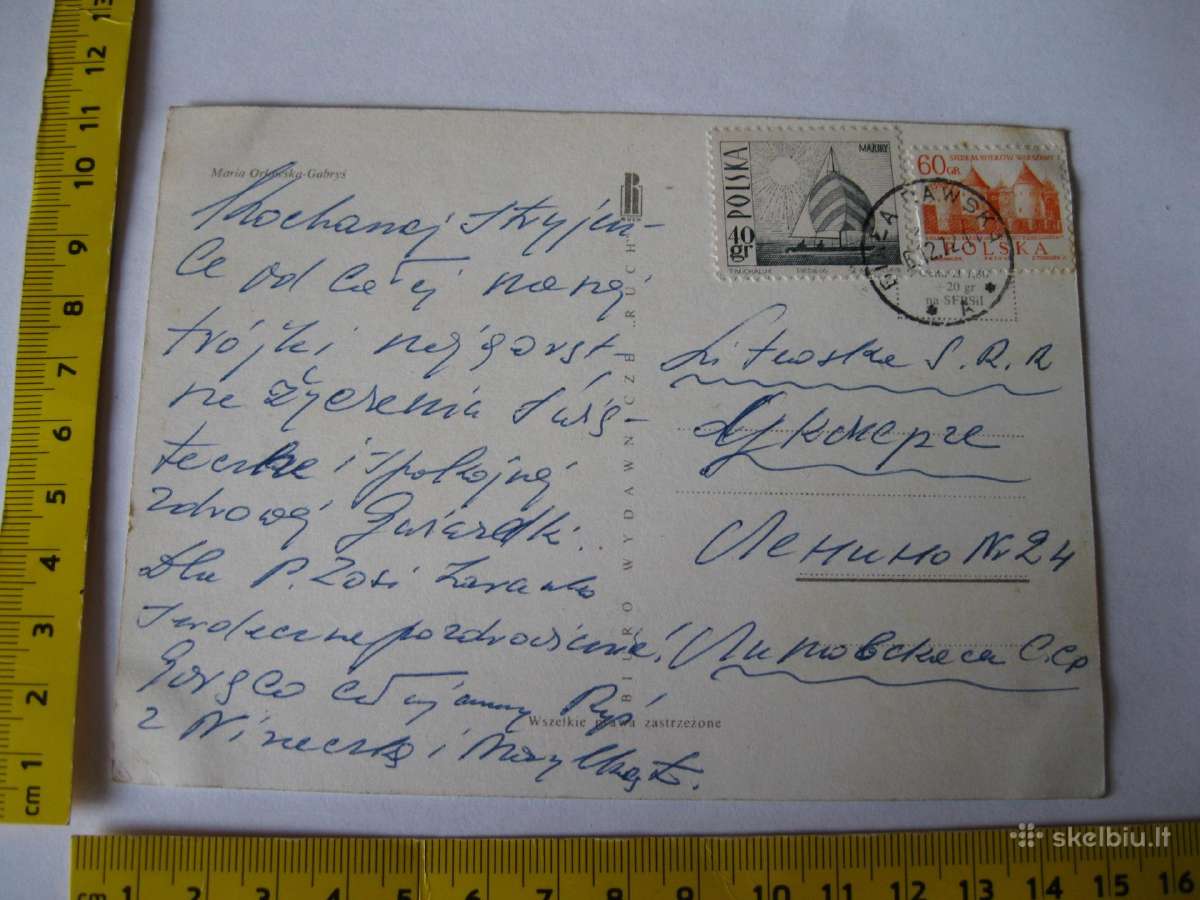 Maria Orłowska-Gabryś
Kochanej Stryjen-
ce od całej naszej
trójki najgoręt-
sze życzenia świą-
teczne i spokojnej
zdrowej Gwiazdki.
Dla P. Zosi
serdeczne pozdrowienia!
Gorąco całujemy
z Nineczką i
BIURO WYDAWNICZE "RUCH"
RUCH
Wszelkie prawa zastrzeżone
POLSKA
40 gr
MARINY
T. MICHALUK
60 GR
SIEDEM WIEKÓW WARSZAWY
POLSKA
BIAŁA RAWSKA
A
+20 gr
na SFBSiI
Litewska S.R.R
Ленино Nr 24
Литовская С.Ср
cm 1 2 3 4 5 6 7 8 9 10 11 12 13
cm 1 2 3 4 5 6 7 8 9 10 11 12 13 14 15 16
skelbiu.lt